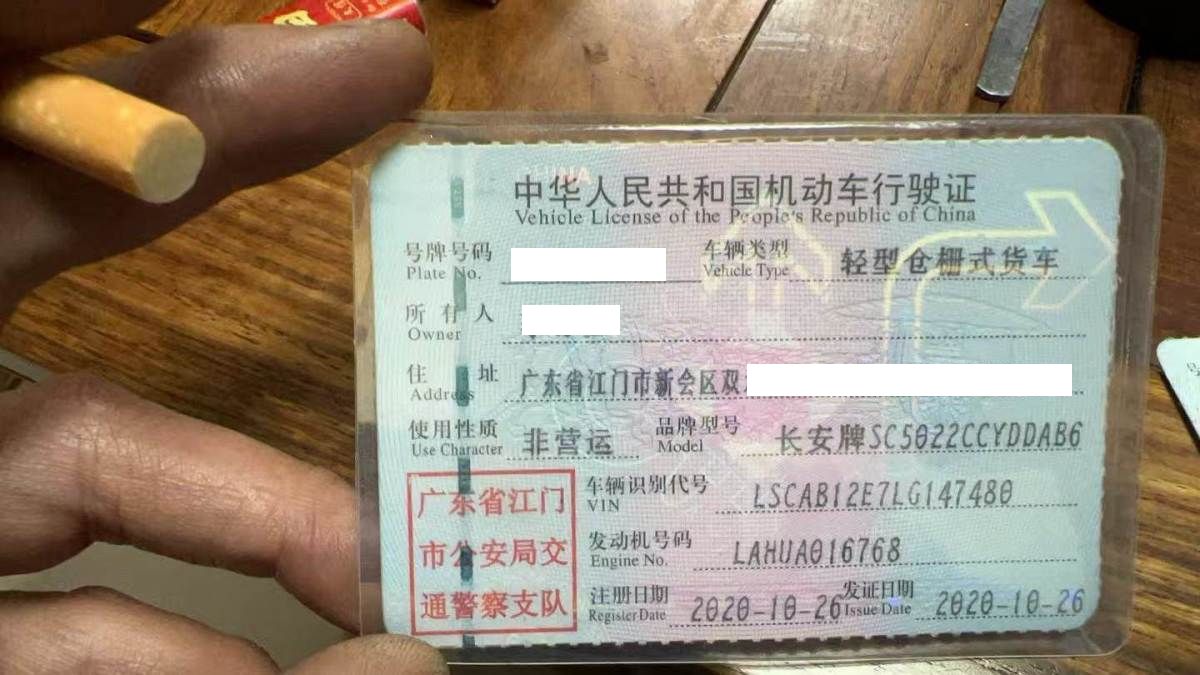 中华人民共和国机动车行驶证
Vehicle License of the People's Republic of China
号牌号码 车辆类型 轻型仓栅式货车
Plate No. Vehicle Type
所有人
Owner
住址 广东省江门市新会区双
Address
使用性质 非营运 品牌型号 长安牌SC5022CCYDDAB6
Use Character Model
广东省江门
市公安局交
通警察支队
车辆识别代号 LSCAB12E7LG147480
VIN
发动机号码 LAHUA016768
Engine No.
注册日期 2020-10-26 发证日期 2020-10-26
Register Date Issue Date